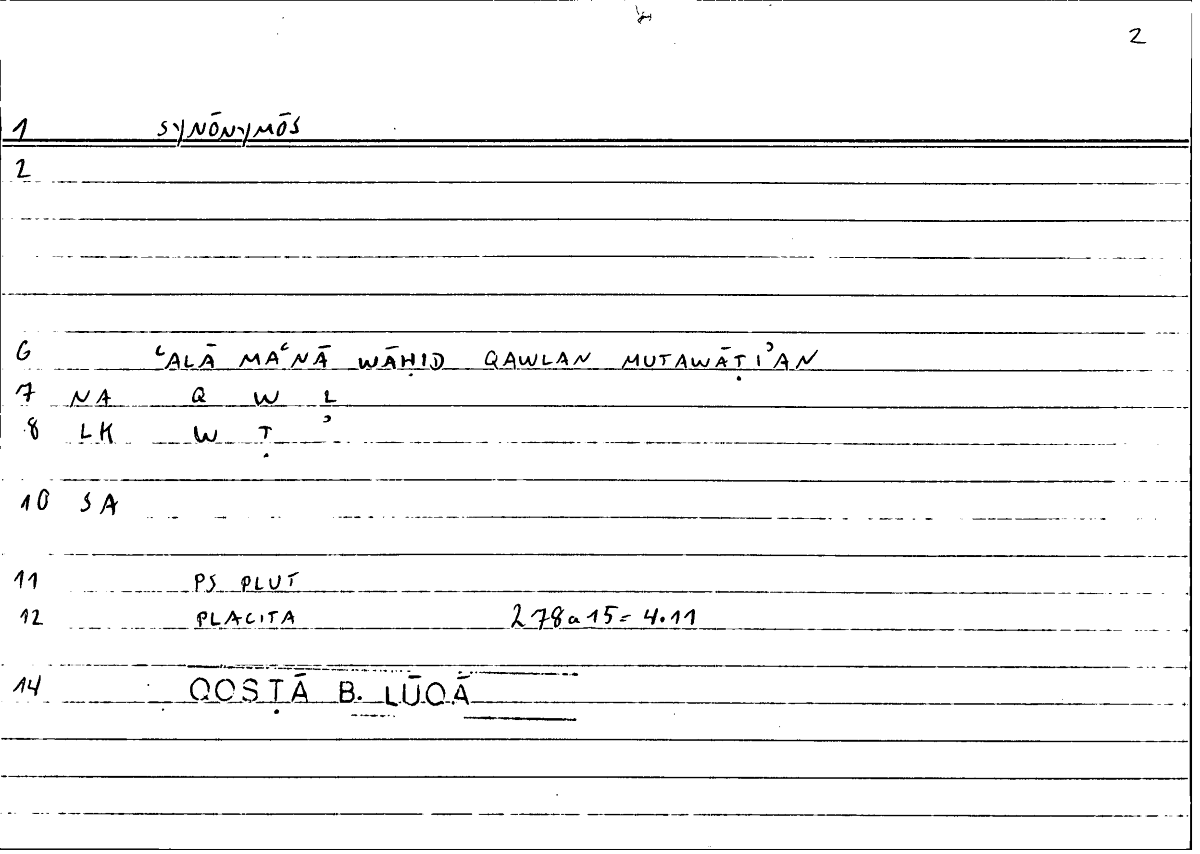 2
1 SYNŌNYMŌS
2
6 ʿALĀ MAʿNĀ WĀḤID QAWLAN MUTAWĀṬIʾAN
7 NA Q W L
8 LK W Ṭ ʾ
10 SA
11 PS PLUT
12 PLACITA 278a15= 4.11
14 QOSṬĀ B. LŪQĀ